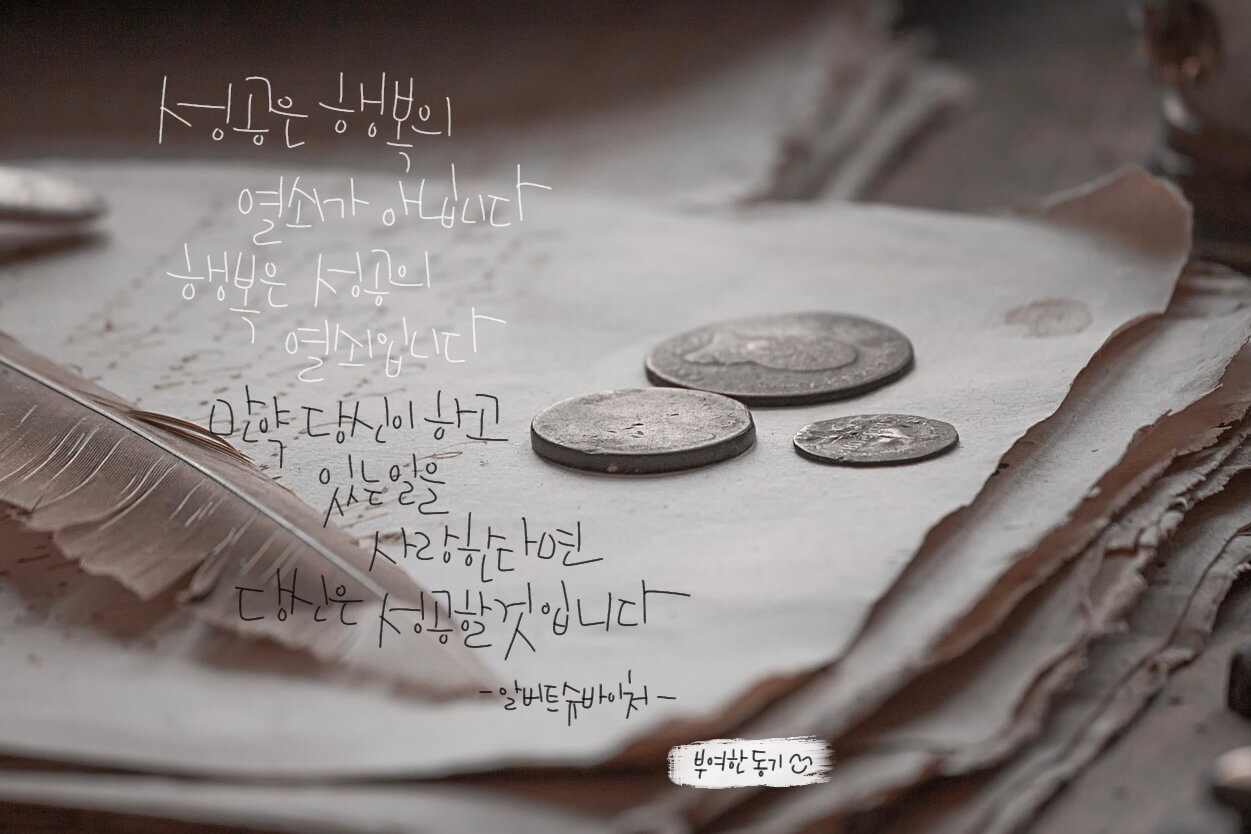 성공은 행복의
열쇠가 아닙니다
행복은 성공의
열쇠입니다
만약 당신이 하고
있는 일을
사랑한다면
당신은 성공할 것입니다
-알버트 슈바이처-
부여한 동기